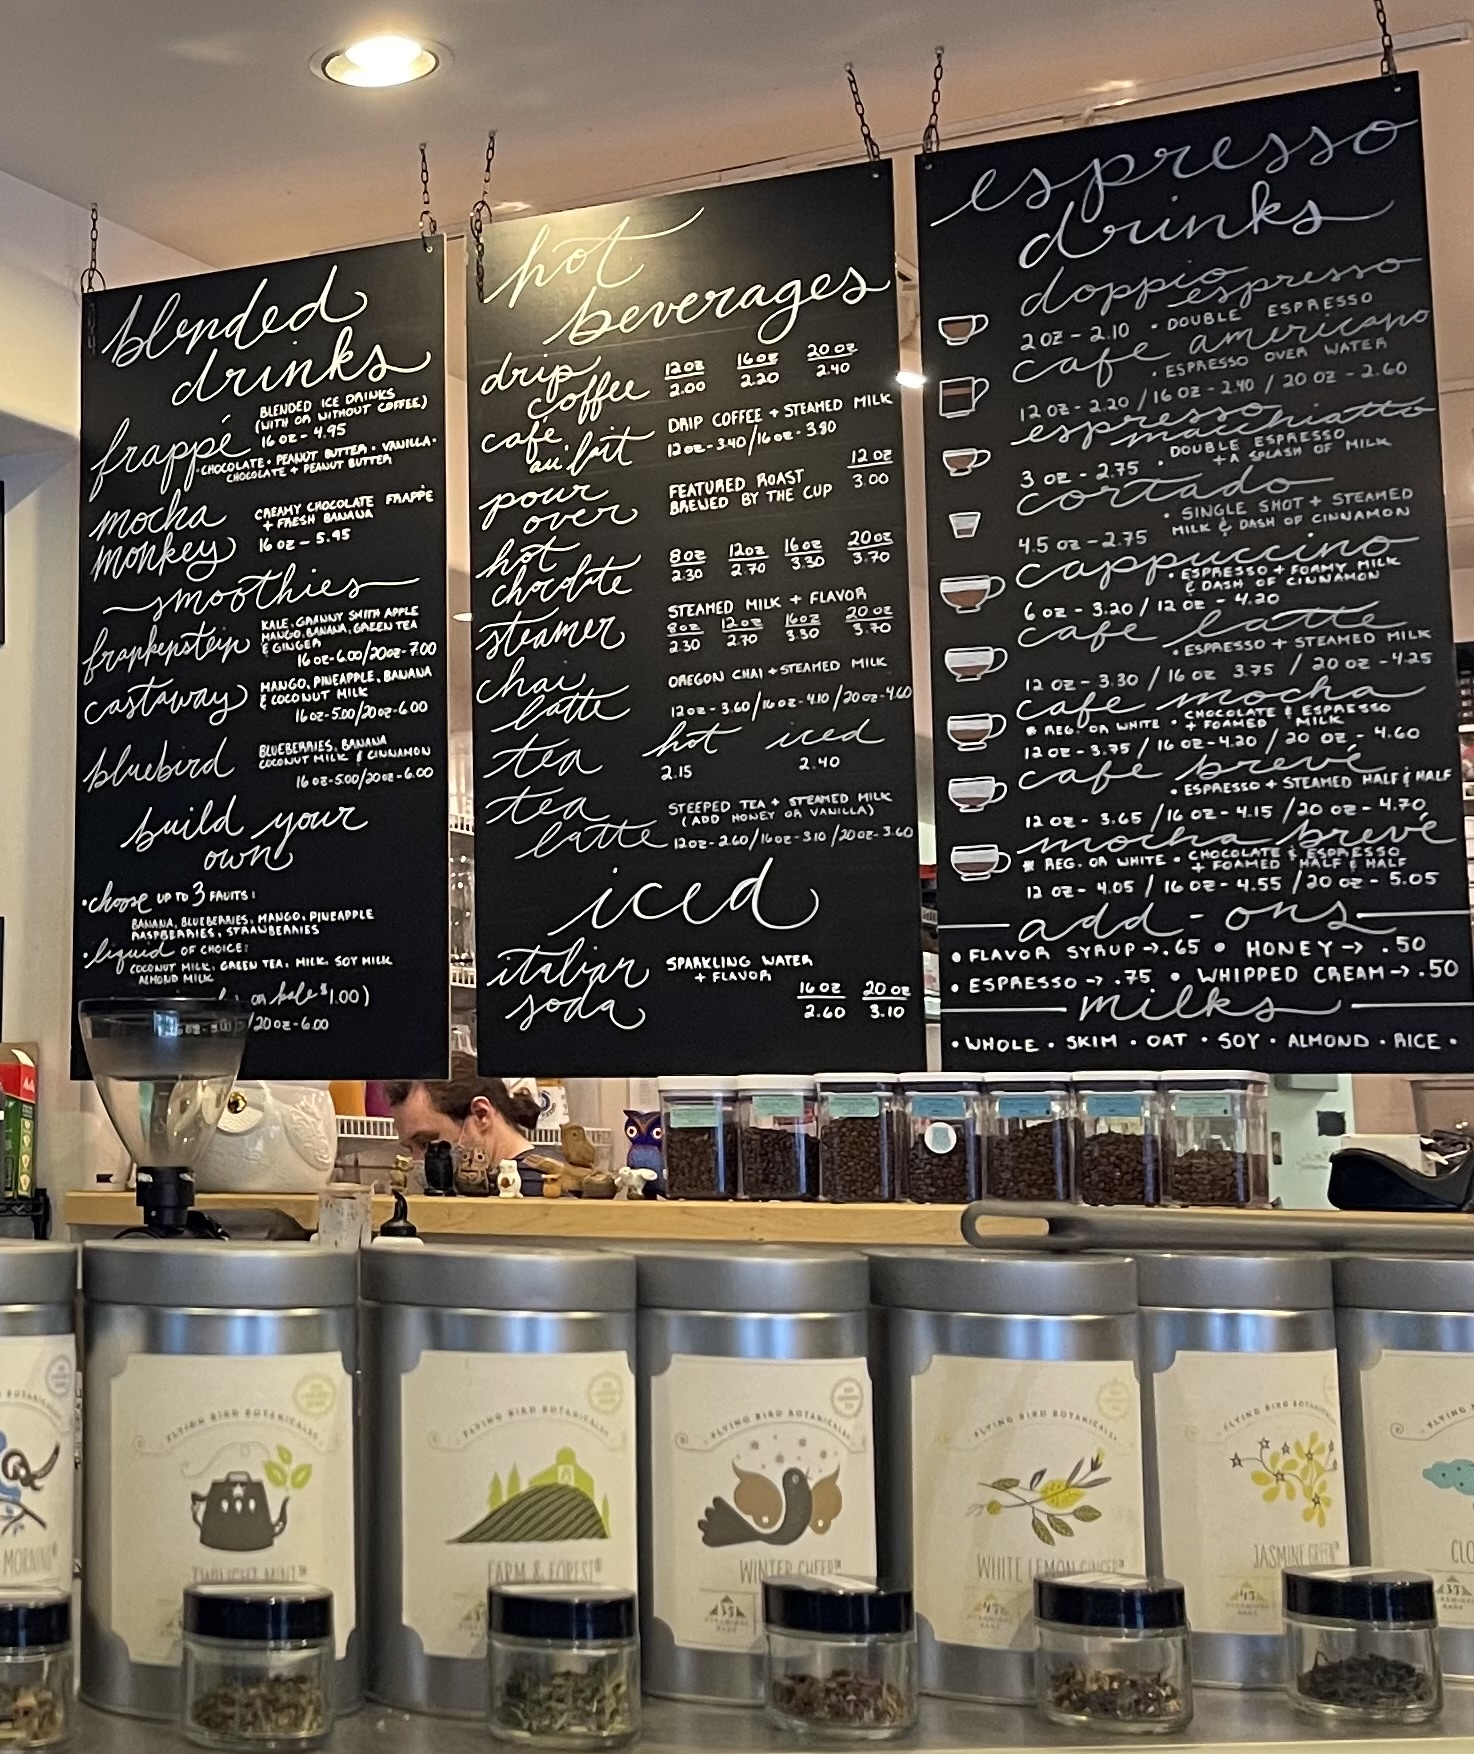 blended
drinks
frappé
BLENDED ICE DRINKS
(WITH OR WITHOUT COFFEE)
16 OZ - 4.95
• CHOCOLATE • PEANUT BUTTER • VANILLA •
CHOCOLATE + PEANUT BUTTER
mocha
monkey
CREAMY CHOCOLATE FRAPPE
+ FRESH BANANA
16 OZ - 5.95
smoothies
frankenstein
KALE, GRANNY SMITH APPLE
MANGO, BANANA, GREEN TEA
& GINGER
16 OZ-6.00/20 OZ-7.00
castaway
MANGO, PINEAPPLE, BANANA
& COCONUT MILK
16 OZ-5.00/20 OZ-6.00
bluebird
BLUEBERRIES, BANANA
COCONUT MILK & CINNAMON
16 OZ-5.00/20 OZ-6.00
build your
own
• choose UP TO 3 FRUITS:
BANANA, BLUEBERRIES, MANGO, PINEAPPLE
RASPBERRIES, STRAWBERRIES
• liquid OF CHOICE:
COCONUT MILK, GREEN TEA, MILK, SOY MILK
ALMOND MILK
or kale $1.00)
/20 OZ-6.00
hot
beverages
drip
coffee
12 OZ 16 OZ 20 OZ
2.00 2.20 2.40
café
au lait
DRIP COFFEE + STEAMED MILK
12 OZ-3.40/16 OZ-3.80
pour
over
FEATURED ROAST
BREWED BY THE CUP
12 OZ
3.00
hot
chocolate
8 OZ 12 OZ 16 OZ 20 OZ
2.30 2.70 3.30 3.70
steamer
STEAMED MILK + FLAVOR
8 OZ 12 OZ 16 OZ 20 OZ
2.30 2.70 3.30 3.70
chai
latte
OREGON CHAI + STEAMED MILK
12 OZ-3.60/16 OZ-4.10/20 OZ-4.60
tea
hot iced
2.15 2.40
tea
latte
STEEPED TEA + STEAMED MILK
(ADD HONEY OR VANILLA)
12 OZ-2.60/16 OZ-3.10/20 OZ-3.60
iced
italian
soda
SPARKLING WATER
+ FLAVOR
16 OZ 20 OZ
2.60 3.10
espresso
drinks
doppio espresso
2 OZ - 2.10 • DOUBLE ESPRESSO
cafe americano
• ESPRESSO OVER WATER
12 OZ - 2.20 / 16 OZ - 2.40 / 20 OZ - 2.60
espresso macchiatto
3 OZ - 2.75 • DOUBLE ESPRESSO
+ A SPLASH OF MILK
cortado
• SINGLE SHOT + STEAMED
MILK & DASH OF CINNAMON
4.5 OZ - 2.75
cappuccino
• ESPRESSO + FOAMY MILK
& DASH OF CINNAMON
6 OZ - 3.20 / 12 OZ - 4.20
cafe latte
• ESPRESSO + STEAMED MILK
12 OZ - 3.30 / 16 OZ 3.75 / 20 OZ - 4.25
cafe mocha
* REG. OR WHITE • CHOCOLATE & ESPRESSO
+ FOAMED MILK
12 OZ - 3.75 / 16 OZ - 4.20 / 20 OZ - 4.60
café brevé
• ESPRESSO + STEAMED HALF & HALF
12 OZ - 3.65 / 16 OZ - 4.15 / 20 OZ - 4.70
mocha brevé
* REG. OR WHITE • CHOCOLATE & ESPRESSO
+ FOAMED HALF & HALF
12 OZ - 4.05 / 16 OZ - 4.55 / 20 OZ - 5.05
add-ons
• FLAVOR SYRUP → .65 • HONEY → .50
• ESPRESSO → .75 • WHIPPED CREAM → .50
milks
• WHOLE • SKIM • OAT • SOY • ALMOND • RICE •
MORNING
FLYING BIRD BOTANICALS
TWILIGHT MINT
FLYING BIRD BOTANICALS
FARM & FOREST
FLYING BIRD BOTANICALS
WINTER CHEER
FLYING BIRD BOTANICALS
WHITE LEMON GINGER
FLYING BIRD BOTANICALS
JASMINE GREEN
FLYING
CLO